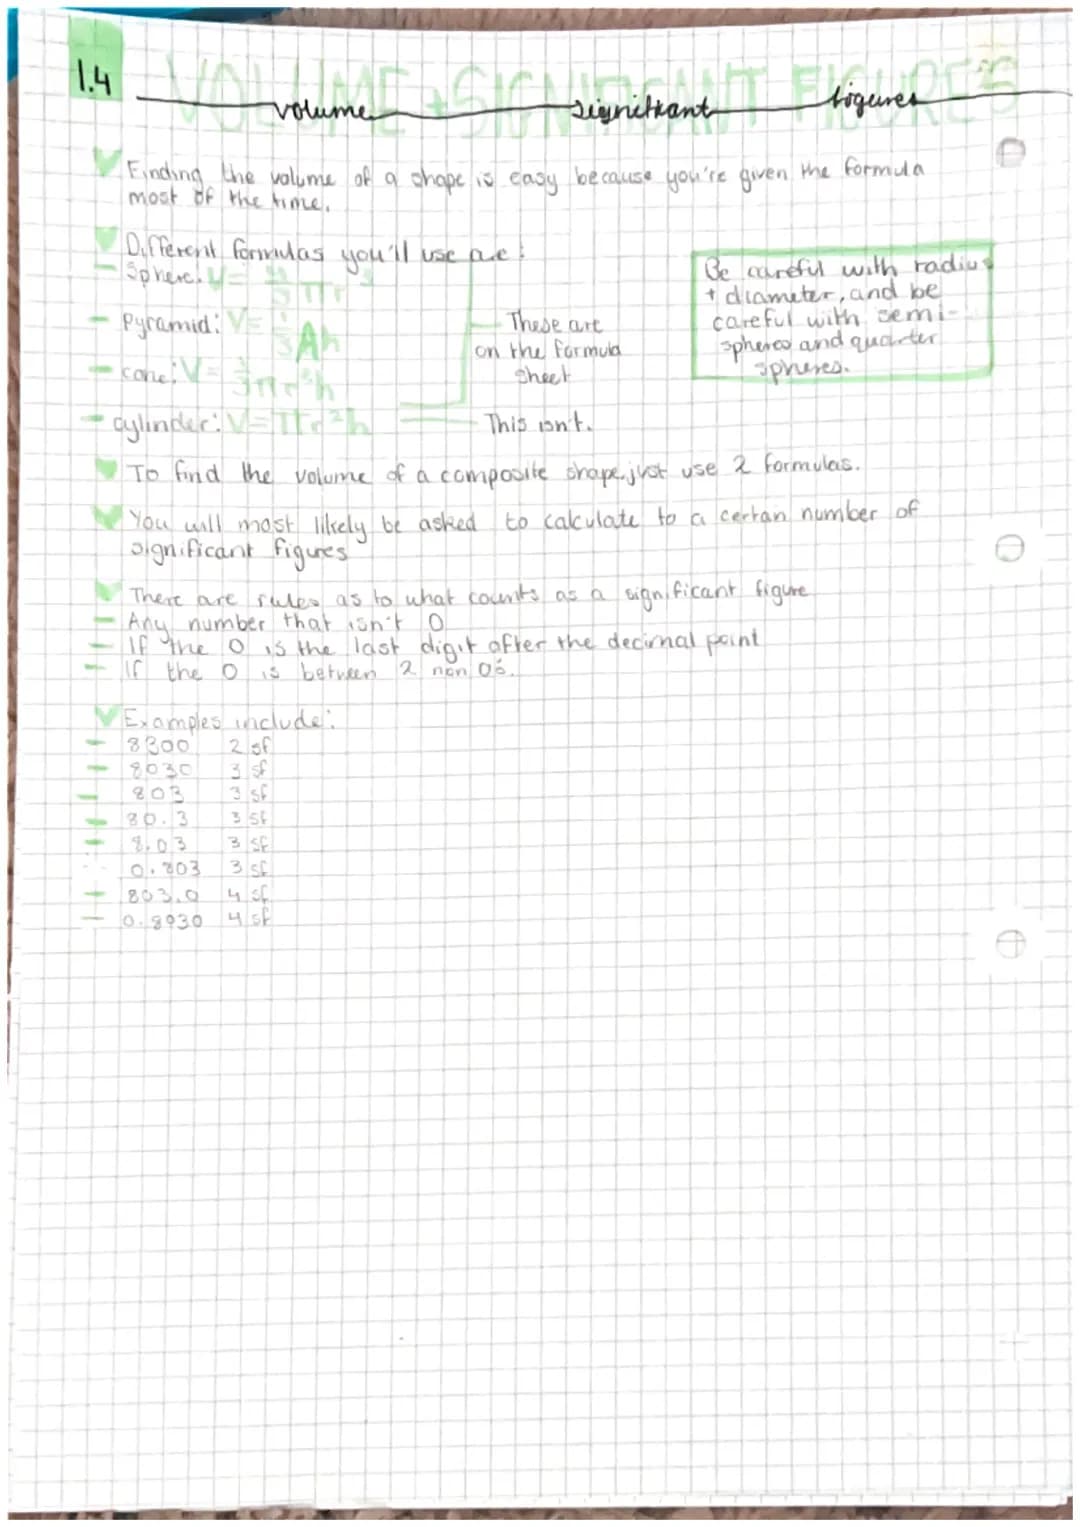 1.4 VOLUME + SIGNIFICANT FIGURES
volume significant figures
Finding the volume of a shape is easy because you're given the formula
most of the time.
Different formulas you'll use are:
Sphere: V = 4/3 πr³
Pyramid: V = 1/3 Ah
cone: V = 1/3 πr²h
These are
on the formula
sheet
Be careful with radius
+ diameter, and be
careful with semi-
spheres and quarter
spheres.
cylinder: V = πr²h
This isn't.
To find the volume of a composite shape, just use 2 formulas.
You will most likely be asked to calculate to a certan number of
significant figures
There are rules as to what counts as a significant figure
Any number that isn't 0
If the 0 is the last digit after the decimal point
If the 0 is between 2 non 0s.
Examples include:
8300 2 sf
8030 3 sf
803 3 sf
80.3 3 sf
8.03 3 sf
0.803 3 sf
803.0 4 sf
0.8030 4 sf